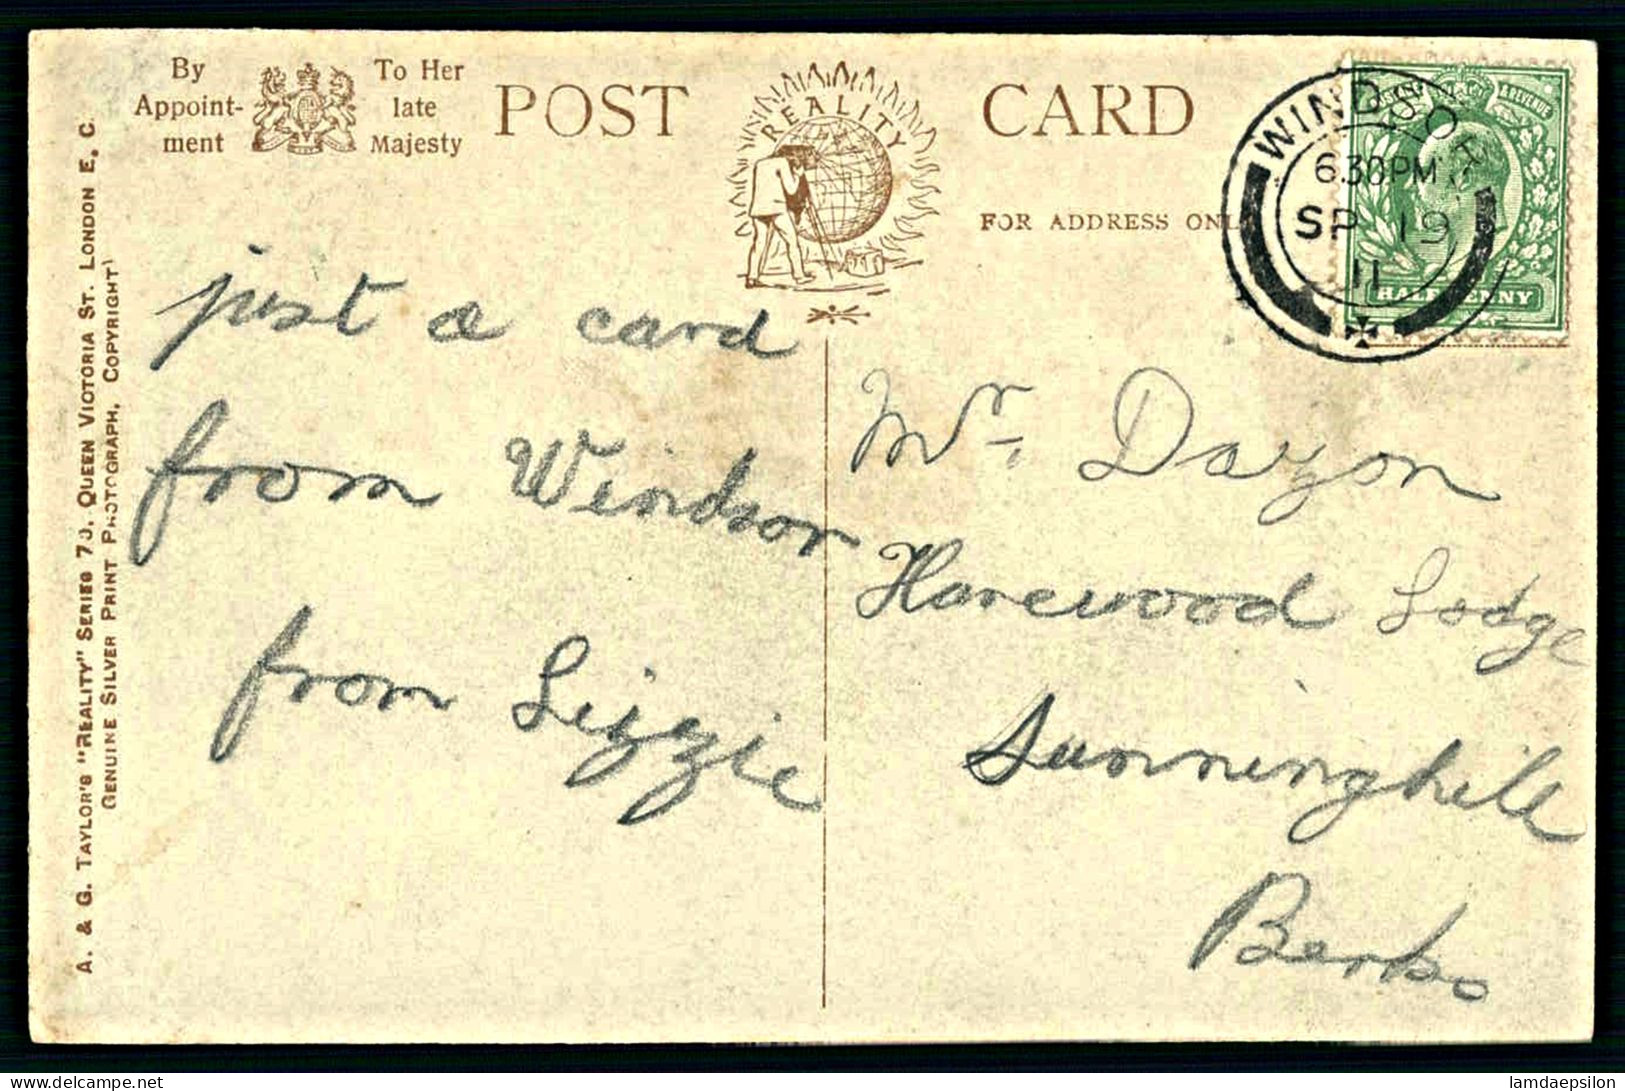 By
Appoint-
ment
To Her
late
Majesty
POST
REALITY
CARD
FOR ADDRESS ONL
WINDSOR
6.30PM
SP 19
11
& REVENUE
HALFPENNY
A. & G. TAYLOR'S "REALITY" SERIES 70, QUEEN VICTORIA ST. LONDON E.C.
GENUINE SILVER PRINT PHOTOGRAPH, COPYRIGHT
just a card
from Windsor
from Lizzie
Mr. Dazon
Harewood Lodge
Sunninghill
Berks
lamdaepsilon